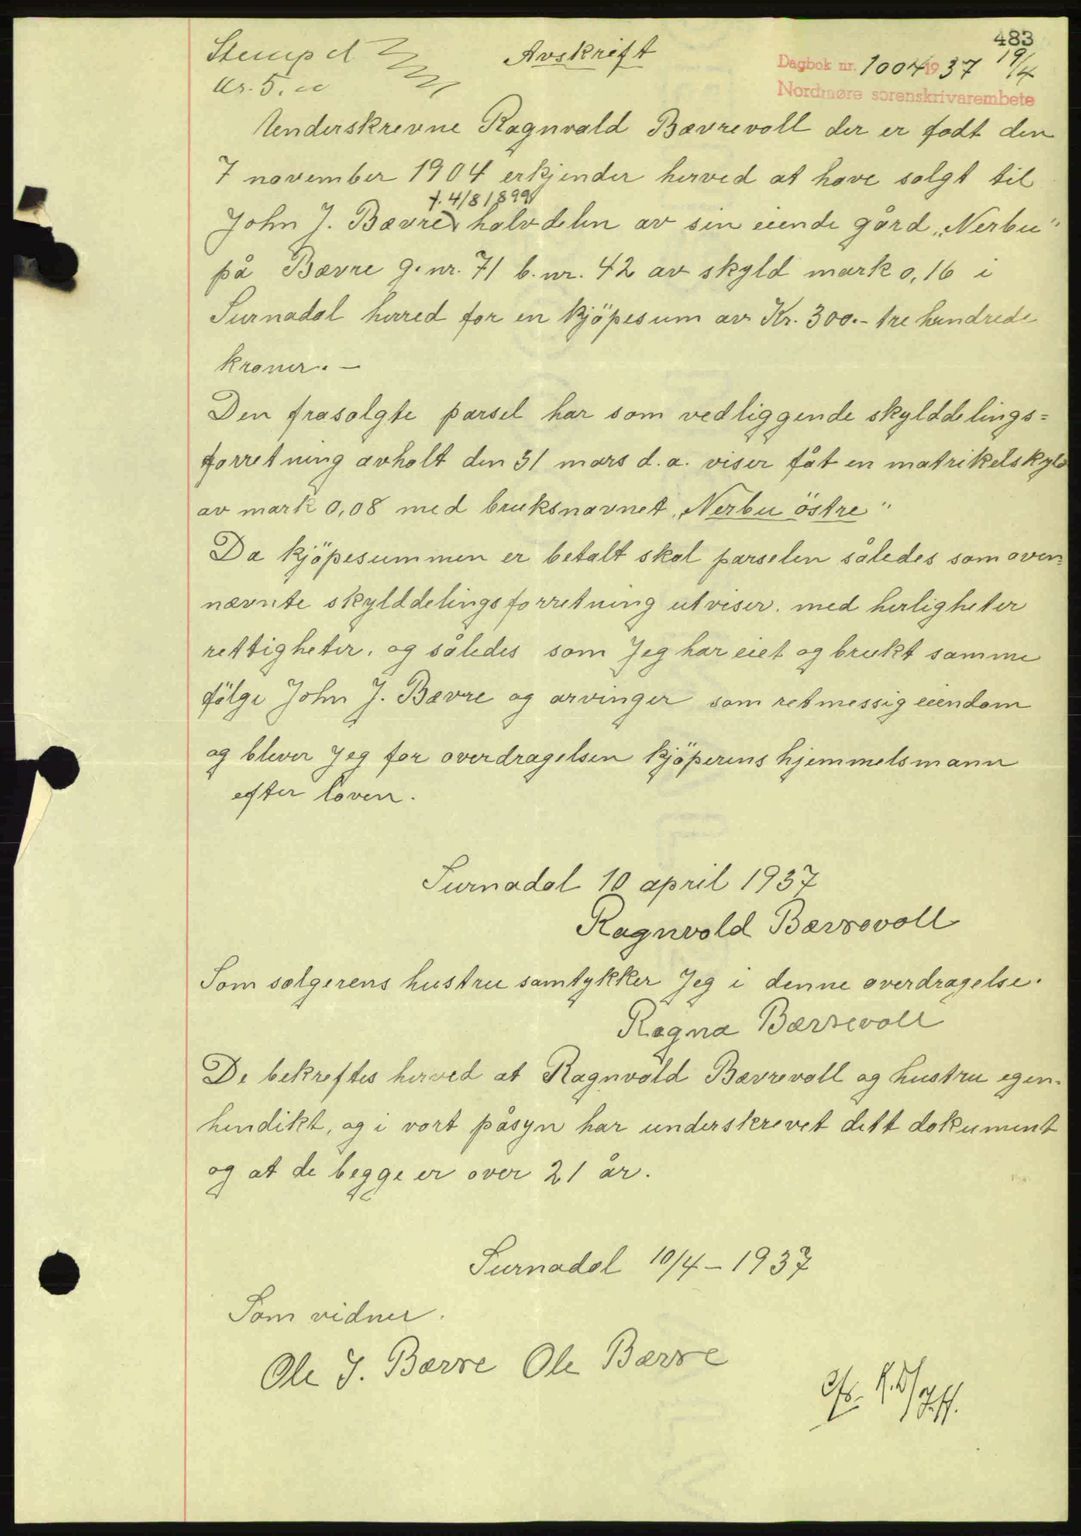 483
Stempel Avskrift
Kr. 5.00
Dagbok nr. 1004 1937 19/4
Nordmøre sorenskrivarembete
Underskrevne Ragnvald Bævrevoll der er födt den
7 november 1904 erkjender herved at have solgt til
f. 4/8 1899
John J. Bævre halvdelen av sin eiende gård „Nerbu"
på Bævre g.nr. 71 b.nr. 42 av skyld mark 0,16 i
Surnadal herred for en kjöpesum av Kr. 300.- tre hundrede
kroner. —
Den frasolgte parsel har som vedliggende skylddelings=
forretning avholt den 31 mars d.a. viser fåt en matrikelskyld
av mark 0,08 med bruksnavnet „Nerbu östre"
Da kjöpesummen er betalt skal parselen således som oven=
nævnte skylddelingsforretning utviser. med herligheter
rettigheter. og således som Jeg har eiet og brukt samme
fölge John J. Bævre og arvinger som retmessig eiendom
og blever Jeg for overdragelsen kjöperens hjemmelsmann
efter loven.
Surnadal 10 april 1937
Ragnvald Bævrevoll
Som selgerens hustru samtykker Jeg i denne overdragelse.
Ragna Bævrevoll
De bekreftes herved at Ragnvald Bævrevoll og hustru egen=
hendikt, og i vort påsyn har underskrevet dett dokument
og at de begge er over 21 år.
Surnadal 10/4 – 1937
Som vidner.
Ole J. Bævre Ole Bævre